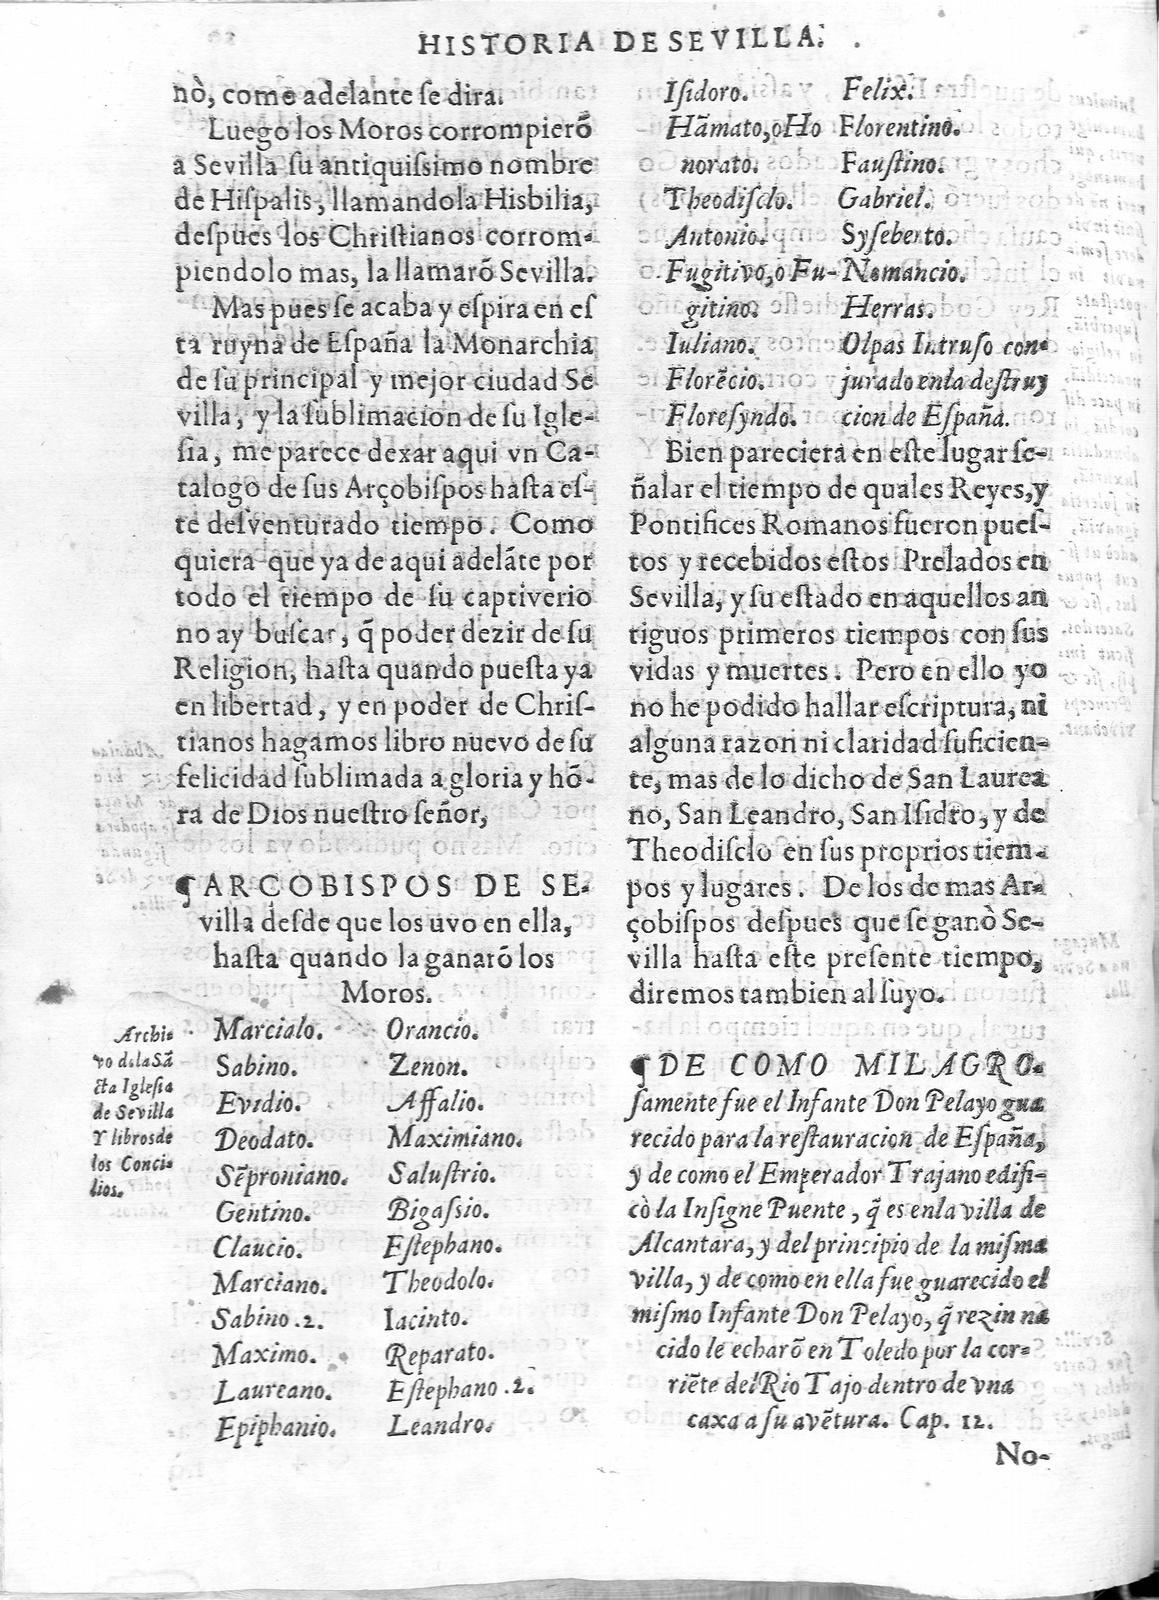 HISTORIA DE SEVILLA.
nò, come adelante se dira.
Luego los Moros corrompierõ
a Sevilla su antiquissimo nombre
de Hispalis, llamandola Hisbilia,
despues los Christianos corrom-
piendolo mas, la llamarõ Sevilla.
Mas pues se acaba y espira en es
ta ruyna de España la Monarchia
de su principal y mejor ciudad Se
villa, y la sublimacion de su Igle-
sia, me parece dexar aqui vn Ca-
talogo de sus Arçobispos hasta es-
te desventurado tiempo. Como
quiera que ya de aqui adelãte por
todo el tiempo de su captiverio
no ay buscar, q̃ poder dezir de su
Religion, hasta quando puesta ya
en libertad, y en poder de Chris-
tianos hagamos libro nuevo de su
felicidad sublimada a gloria y hõ-
ra de Dios nuestro señor,
¶ ARÇOBISPOS DE SE-
villa desde que los uvo en ella,
hasta quando la ganarõ los
Moros.
Archi-
vo de la Sã
cta Iglesia
de Sevilla
Y libros de
los Conci-
lios.
Marcialo. Orancio.
Sabino. Zenon.
Evidio. Affalio.
Deodato. Maximiano.
Sẽproniano. Salustrio.
Gentino. Bigassio.
Claucio. Estephano.
Marciano. Theodolo.
Sabino .2. Iacinto.
Maximo. Reparato.
Laureano. Estephano .2.
Epiphanio. Leandro.
Isidoro. Felix.
Hãmato, o Ho Florentino.
norato. Faustino.
Theodisclo. Gabriel.
Antonio. Syseberto.
Fugitivo, o Fu- Nomancio.
gitino. Herras.
Iuliano. Olpas Intruso con-
Florẽcio. jurado en la destruy
Floresyndo. cion de España.
Bien pareciera en este lugar se-
ñalar el tiempo de quales Reyes, y
Pontifices Romanos fueron pues-
tos y recebidos estos Prelados en
Sevilla, y su estado en aquellos an
tiguos primeros tiempos con sus
vidas y muertes. Pero en ello yo
no he podido hallar escriptura, ni
alguna razon ni claridad suficien-
te, mas de lo dicho de San Laurea
no, San Leandro, San Isidro, y de
Theodisclo en sus proprios tiem-
pos y lugares. De los de mas Ar-
çobispos despues que se ganò Se-
villa hasta este presente tiempo,
diremos tambien al suyo.
¶ DE COMO MILAGRO-
samente fue el Infante Don Pelayo gua
recido para la restauracion de España,
y de como el Emperador Trajano edifi-
cò la Insigne Puente, q̃ es en la villa de
Alcantara, y del principio de la misma
villa, y de como en ella fue guarecido el
mismo Infante Don Pelayo, q̃ rezin na
cido le echarõ en Toledo por la cor-
riẽte del Rio Tajo dentro de vna
caxa a su avẽtura. Cap. 12.
No-